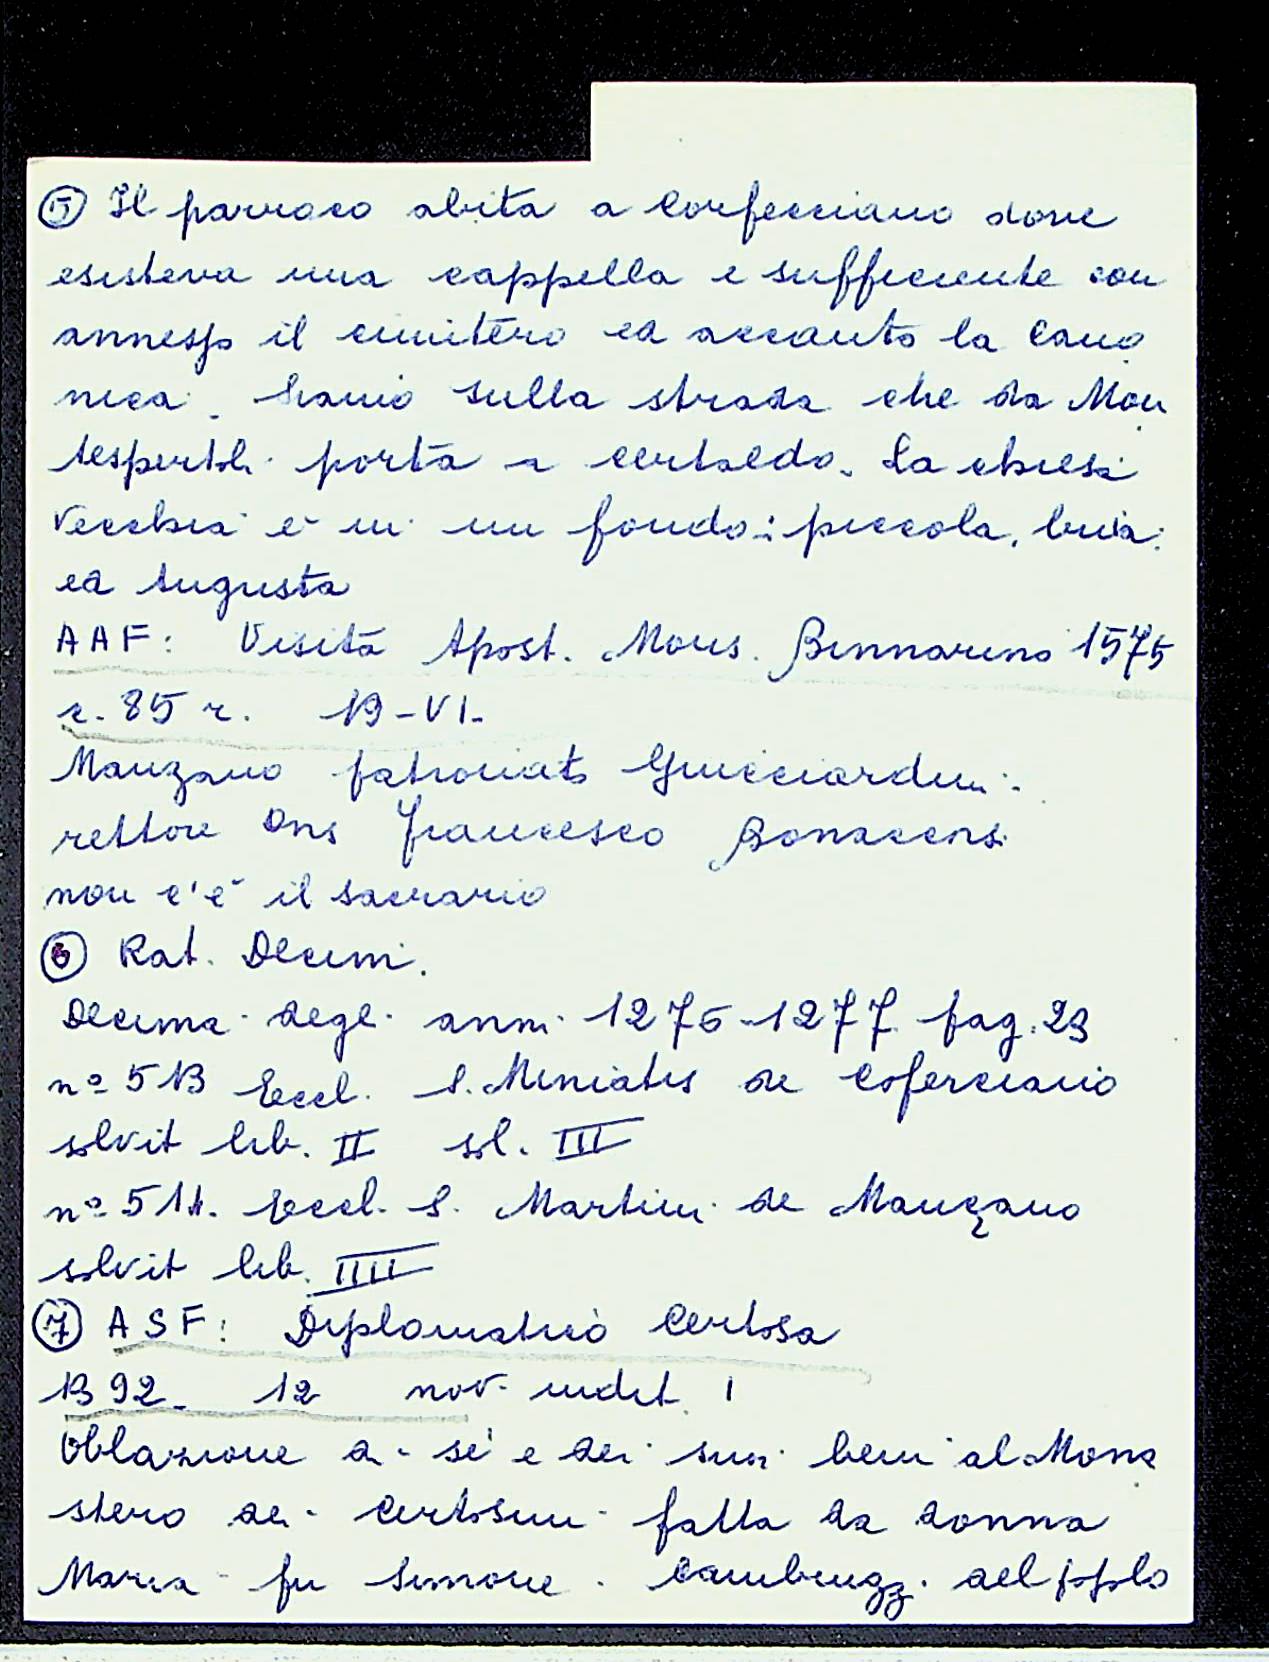 ⑤ Il parroco abita a Corfecciano dove
esisteva una cappella e sufficiente con
annesso il cimitero ed accanto la Cano
nica. Siamo sulla strada che da Mon
tespertoli porta a Certaldo. La chiesa
vecchia è in un fondo: piccola, buia
ed angusta
AAF: Visita Apost. Mons. Binnarino 1575
c. 85 r. 13-VI-
Manzano patronato Guicciardini
rettore Dns Francesco Bonaccorsi
non c'è il sacrario
⑥ Rat. Decim.
Decima degli anni 1276-1277 pag. 23
nº 513 Eccl. S. Miniatis de Coferciano
solvit lib. II sol. III
nº 514. Eccl. S. Martini de Manzano
solvit lib. IIII
⑦ ASF: Diplomatico Certosa
1392. 12 nov. indit. I
Oblazione di sé e dei suoi beni al Mona
stero dei Certosini fatta da donna
Maria fu Simone del popolo